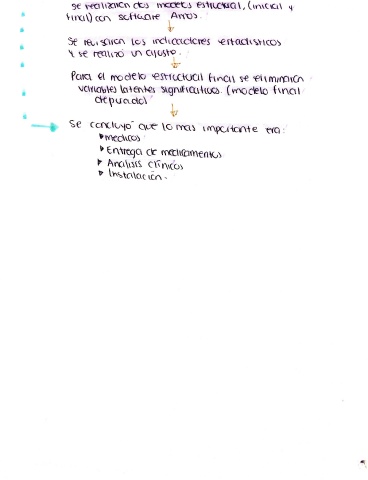 se realizaron dos modelos estructural, (inicial y
final) con software Amos.
Se revisaron los indicadores estadísticos
y se realizó un ajuste.
Para el modelo estructural final se eliminaron
variables latentes significativas. (modelo final
depurado)
Se concluyó que lo mas importante era:
medicos
Entrega de medicamentos
Análisis clínicos
Instalación.